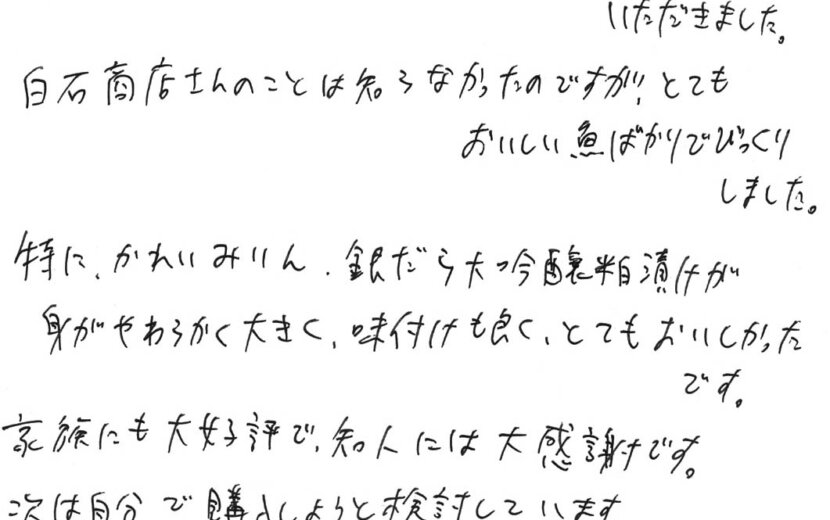 いただきました。
白石商店さんのことは知らなかったのですが、とても
おいしい魚ばかりでびっくり
しました。
特に、かれいみりん、銀だら大吟醸粕漬けが
身がやわらかく大きく、味付けも良く、とてもおいしかった
です。
家族にも大好評で、知人には大感謝です。
次は自分で購入しようと検討しています